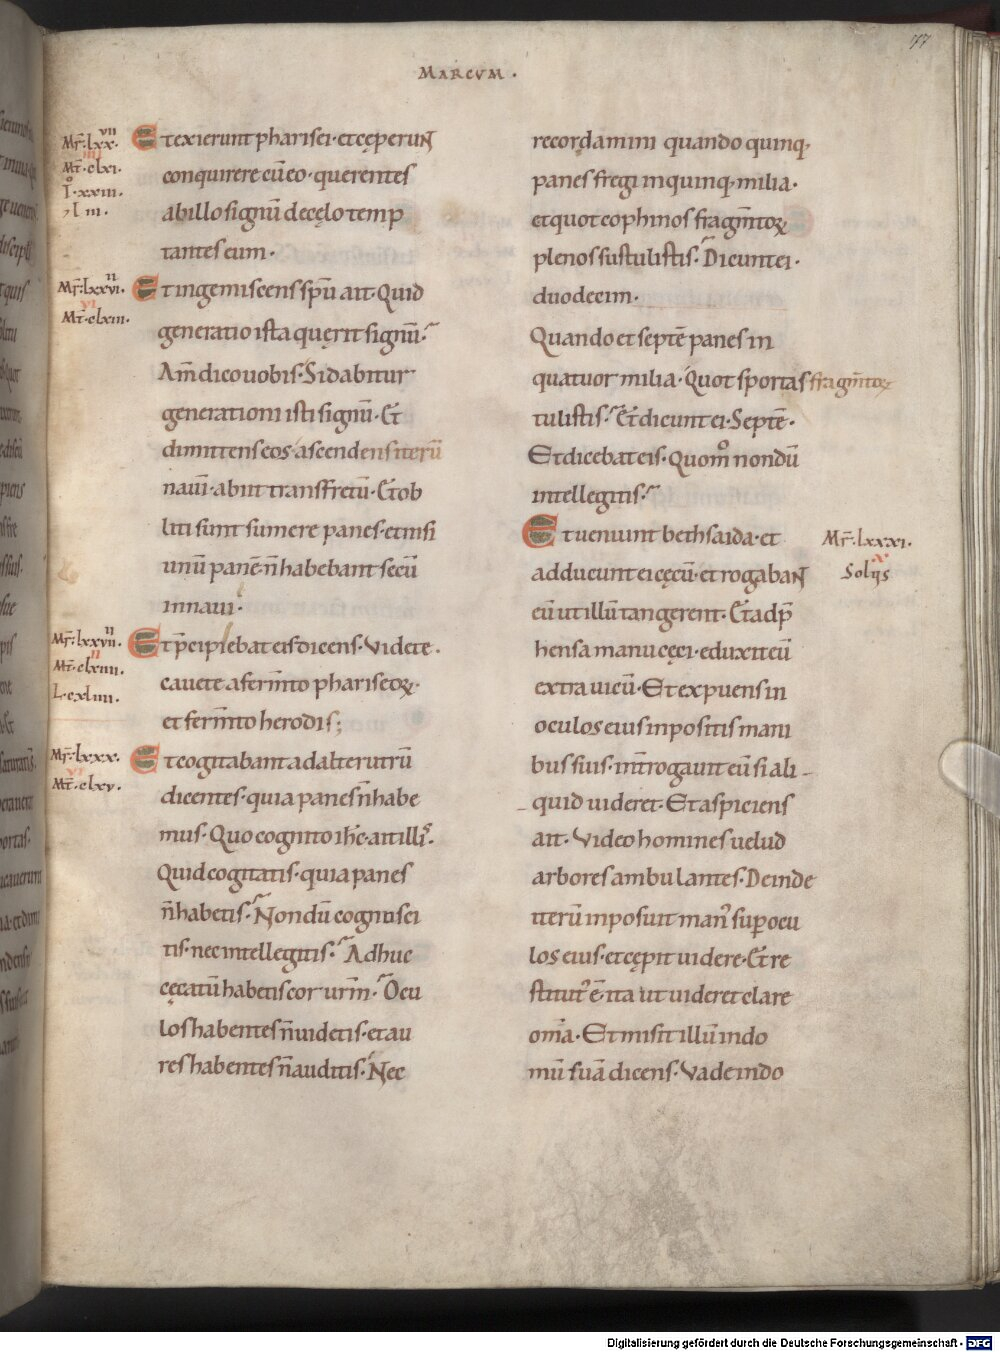 77
MARCVM·
Mr̄·lxx·vii
Mt̄·clxi·iiii
Io·xxiii·
L iii·
Et exierunt pharisei· et cęperuN
conquirere cū eo· querentes
ab illo signū de cęlo temp
tantes eum·
Mr̄·lxxvi·ii
Mt̄·clxiii·vi
Et ingemiscens sp̄u ait· Quid
generatio ista quęrit signū·
Am̄ dico uobis· Si dabitur
generationi isti signū· Et
dimittens eos· ascendens iterū
nauī· abiit trans fretū· Et ob
liti sunt sumere panes· et nisi
unū panē n̄ habebant secū
in naui·
Mr̄·lxxviii·ii
Mt̄·clxiiii·
L·cxliiii·
Et p̄cipiebat eis dicens· Videte·
cauete a ferm̄to phariseoꝝ·
et ferm̄to herodis;
Mr̄·lxxx·
Mt̄·clxv·vi
Et cogitabant ad alterutrū
dicentes· quia panes n̄ habe
mus· Quo cognito ih̄c· ait illis·
Quid cogitatis· quia panes
n̄ habetis· Nondū cognosci
tis· nec intellegitis· Adhuc
cęcatū habetis cor urm̄· Ocu
los habentes n̄ uidetis· et au
res habentes n̄ auditis· Nec
recordamini quando quinq;
panes fregi in quinq; milia·
et quot cophinos fragm̄toꝝ
plenos sustulistis· Dicunt ei·
duodecim·
Quando et septē panes in
quatuor milia· Quot sportas fragm̄toꝝ
tulistis· Et dicunt ei· Septē·
Et dicebat eis· Quomo nondū
intellegitis·
Mr̄·lxxxi·x
Solus
Et ueniunt bethsaida· et
adducunt ei cęcū· et rogabaN
eū ut illū tangerent· Et adp̄
hensa manu cęci· eduxit eū
extra uicū· Et expuens in
oculos eius inpositis mani
bus suis· int̄rogauit eū si ali
quid uideret· Et aspiciens
ait· Video homines uelud
arbores ambulantes· Deinde
iterū inposuit man' sup ocu
los eius· et cępit uidere· Et re
stitut' ē ita ut uideret clare
om̄a· Et misit illū in do
mū suā dicens· Vade in do
Digitalisierung gefördert durch die Deutsche Forschungsgemeinschaft - DFG